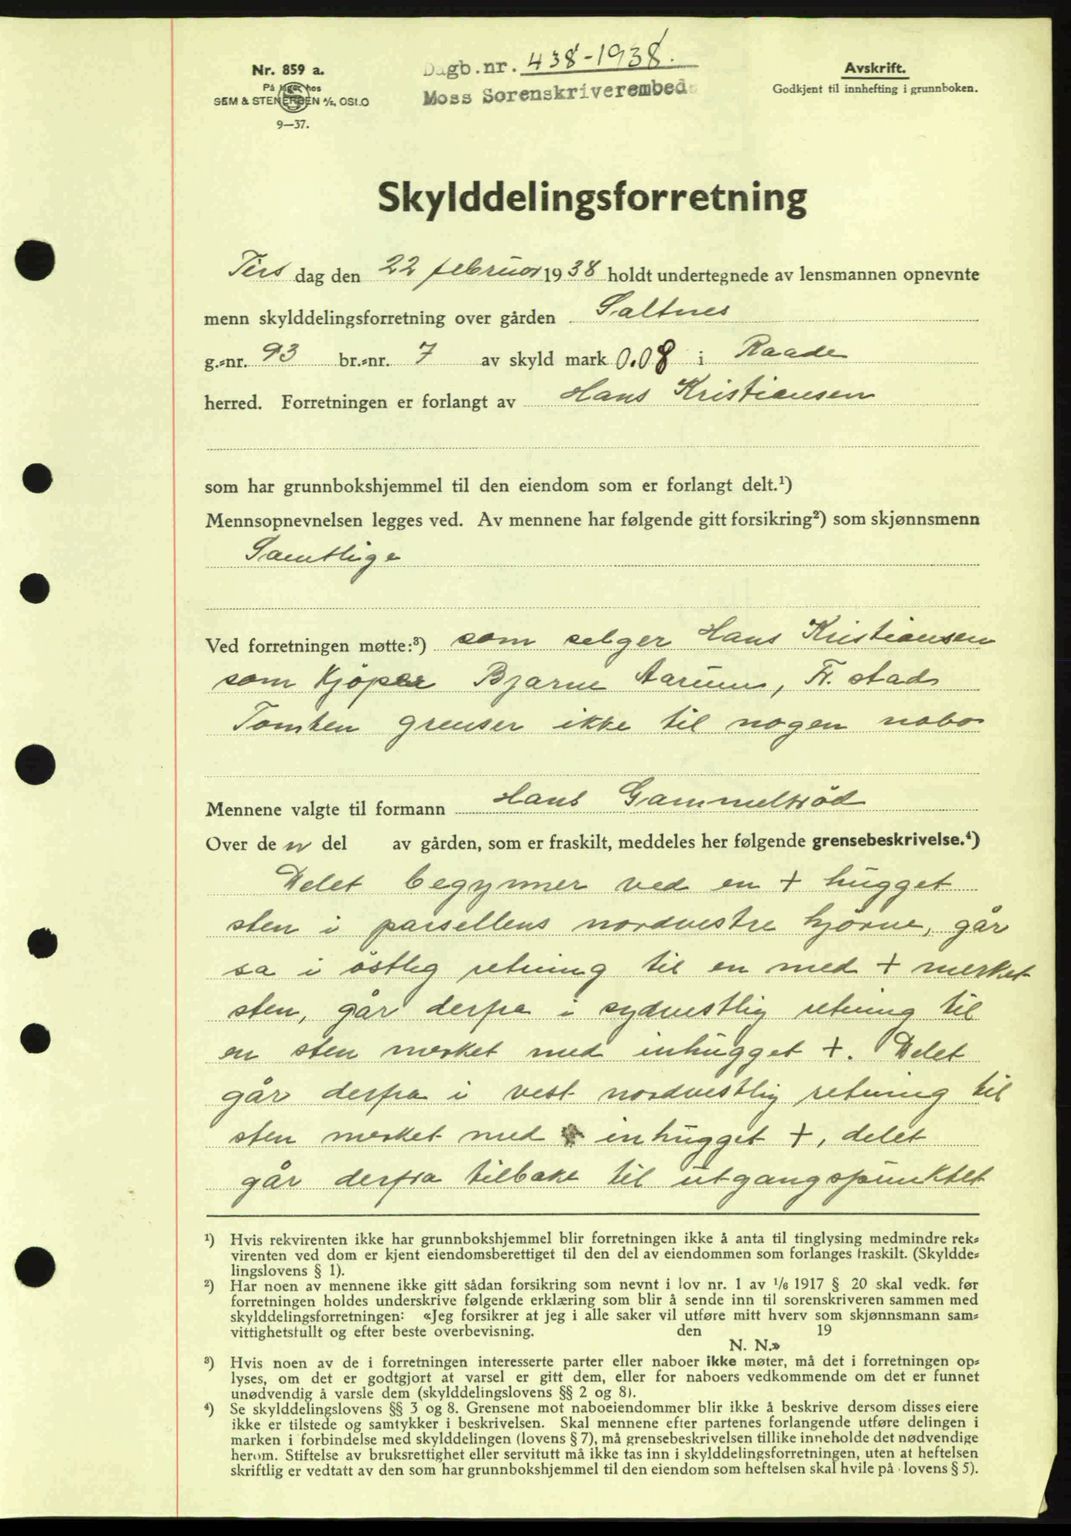 Nr. 859 a.
På lager hos
SEM & STENERSEN A/S, OSLO
9—37.
Dagb.nr. 438-1938.
Moss Sorenskriverembede
Avskrift.
Godkjent til innhefting i grunnboken.
Skylddelingsforretning
Tirs dag den 22 februar 1938 holdt undertegnede av lensmannen opnevnte
menn skylddelingsforretning over gården Saltnes
g.-nr. 93 br.-nr. 7 av skyld mark 0.08 i Raade
herred. Forretningen er forlangt av Hans Kristiansen
som har grunnbokshjemmel til den eiendom som er forlangt delt.¹)
Mennsopnevnelsen legges ved. Av mennene har følgende gitt forsikring²) som skjønnsmenn
Samtlige
Ved forretningen møtte:³) som selger Hans Kristiansen
som kjöper Bjarne Aarum, Fr. stad
Tomten grenser ikke til nogen nabo
Mennene valgte til formann Hans Gammelsröd
Over de n del av gården, som er fraskilt, meddeles her følgende grensebeskrivelse.⁴)
Delet begynner ved en + hugget
sten i parsellens nordvestre hjörne, går
sa i östlig retning til en med + merket
sten, går derfra i sydvestlig retning til
en sten merket med inhugget +. Delet
går derfra i vest nordvestlig retning til
sten merket med inhugget +, delet
går derfra tilbake til utgangspunktet
¹) Hvis rekvirenten ikke har grunnbokshjemmel blir forretningen ikke å anta til tinglysing medmindre rek-
virenten ved dom er kjent eiendomsberettiget til den del av eiendommen som forlanges fraskilt. (Skyldde-
lingslovens § 1).
²) Har noen av mennene ikke gitt sådan forsikring som nevnt i lov nr. 1 av ¹/₆ 1917 § 20 skal vedk. før
forretningen holdes underskrive følgende erklæring som blir å sende inn til sorenskriveren sammen med
skylddelingsforretningen: «Jeg forsikrer at jeg i alle saker vil utføre mitt hverv som skjønnsmann sam-
vittighetsfullt og efter beste overbevisning. den 19
N. N.»
³) Hvis noen av de i forretningen interesserte parter eller naboer ikke møter, må det i forretningen op-
lyses, om det er godtgjort at varsel er gitt dem, eller for naboers vedkommende om det er funnet
unødvendig å varsle dem (skylddelingslovens §§ 2 og 8).
⁴) Se skylddelingslovens §§ 3 og 8. Grensene mot naboeiendommer blir ikke å beskrive dersom disses eiere
ikke er tilstede og samtykker i beskrivelsen. Skal mennene efter partenes forlangende utføre delingen i
marken i forbindelse med skylddelingen (lovens § 7), må grensebeskrivelsen tillike inneholde det nødvendige
herom. Stiftelse av bruksrettighet eller servitutt må ikke tas inn i skylddelingsforretningen, uten at heftelsen
skriftlig er vedtatt av den som har grunnbokshjemmel til den eiendom som heftelsen skal hvile på (lovens § 5).